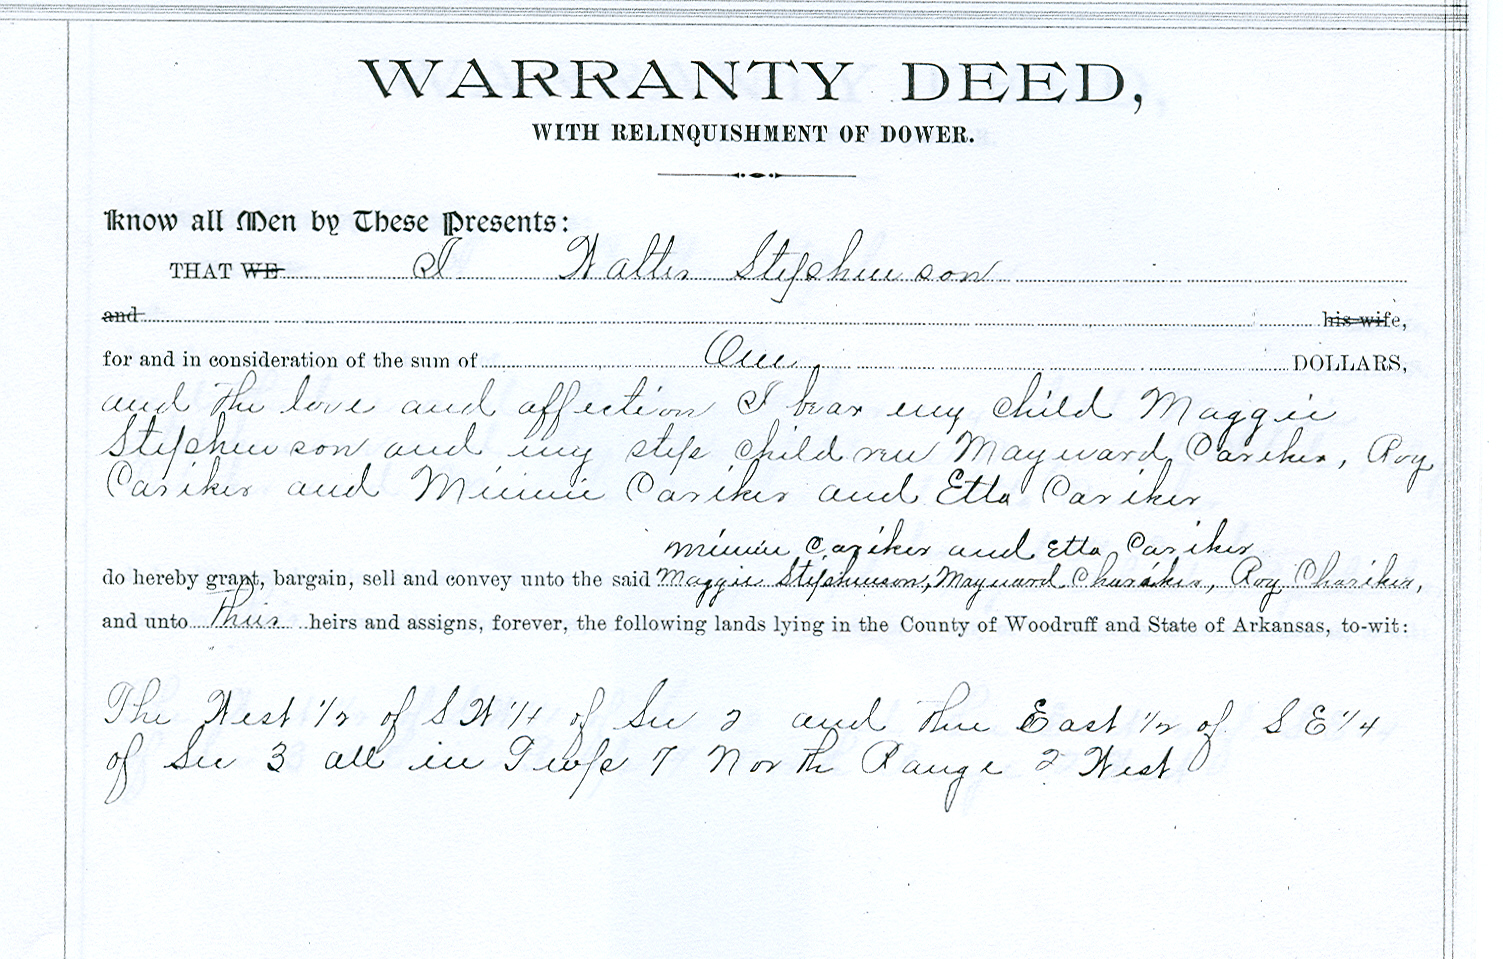 WARRANTY DEED,
WITH RELINQUISHMENT OF DOWER.
Know all Men by These Presents:
THAT WE I Walter Stephenson
and his wife,
for and in consideration of the sum of One DOLLARS,
and the love and affection I bear my child Maggie
Stephenson and my step children Mayward Cariker, Roy
Cariker and Minnie Cariker and Etta Cariker
Minnie Cariker and Etta Cariker
do hereby grant, bargain, sell and convey unto the said Maggie Stephenson, Mayward Chariker, Roy Chariker,
and unto their heirs and assigns, forever, the following lands lying in the County of Woodruff and State of Arkansas, to-wit:
The West 1/2 of S W 1/4 of Sec 2 and the East 1/2 of S E 1/4
of Sec 3 all in Twp 7 North Range 2 West